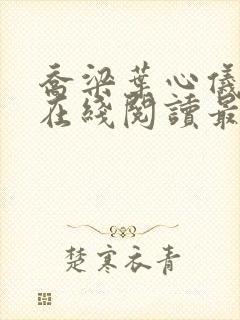 喬梁葉心儀
在綫閱讀最
楚寒衣青